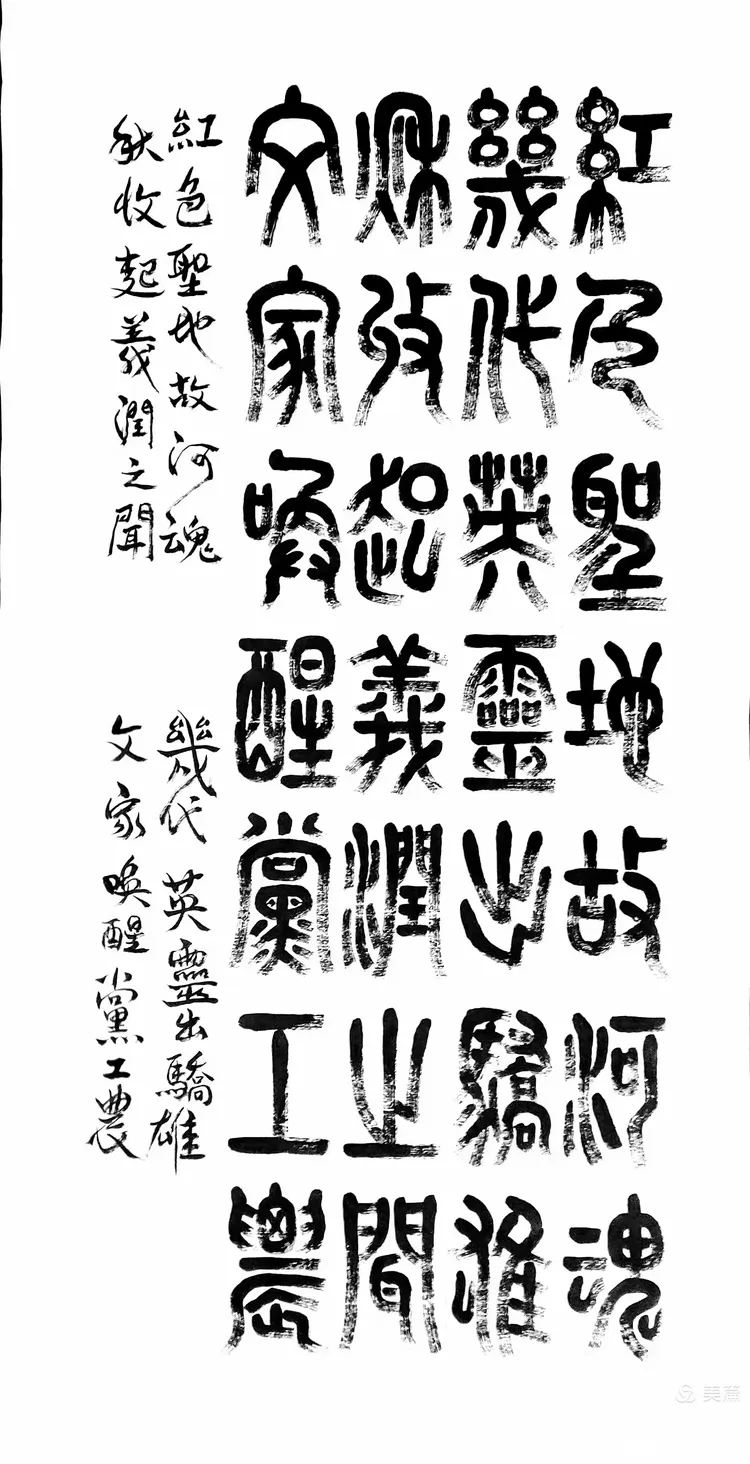 紅色聖地故河魂
幾代英靈出驕雄
秋收起義潤之聞
文家喚醒黨工農
紅色聖地故河魂
幾代英靈出驕雄
秋收起義潤之聞
文家喚醒黨工農
美篇